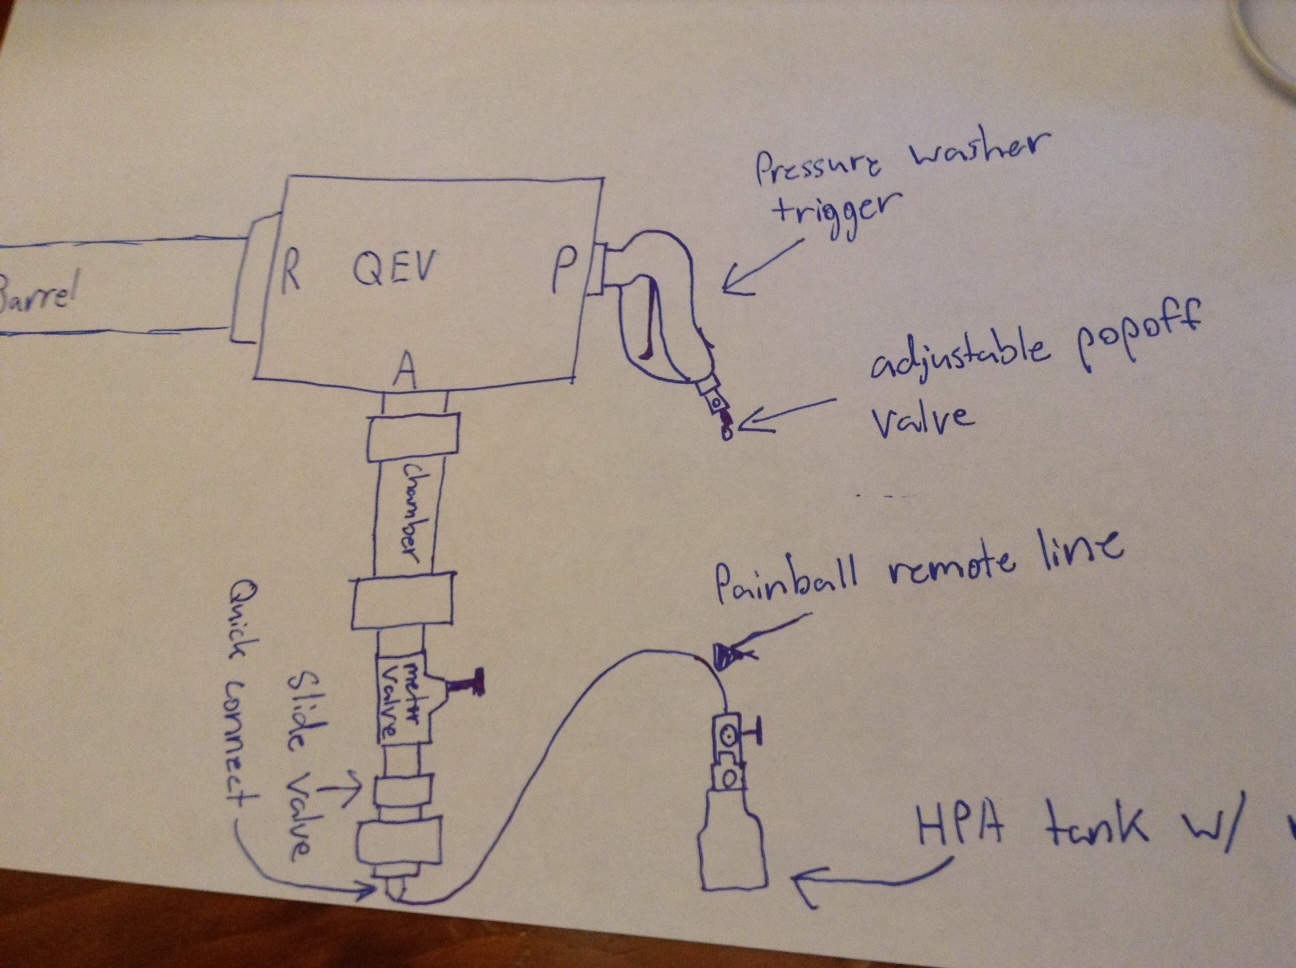 Pressure washer
trigger
R QEV P
Barrel
A
adjustable popoff
valve
chamber
Painball remote line
Quick connect
Slide valve
meter
valve
HPA tank w/